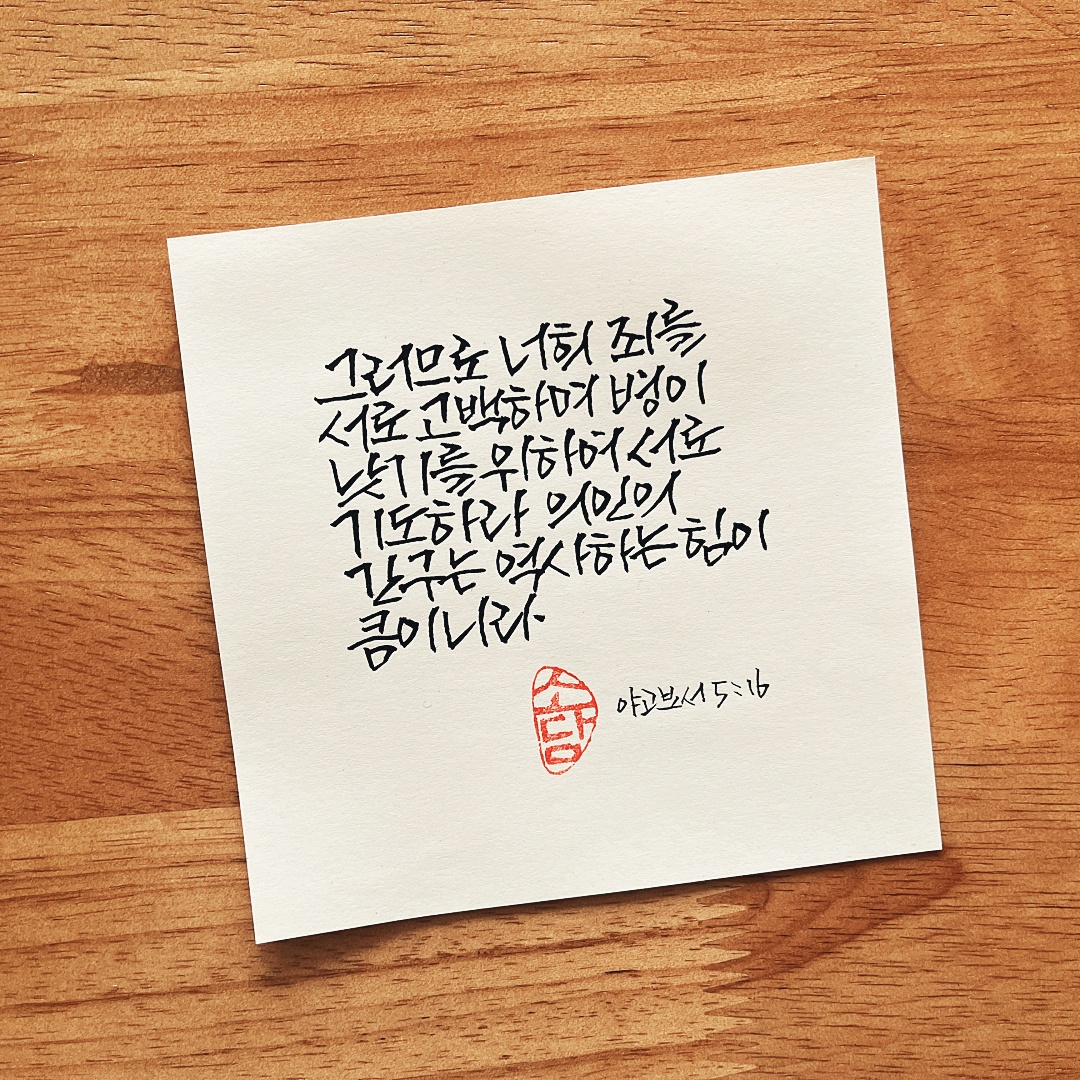 그러므로 너희 죄를
서로 고백하며 병이
낫기를 위하여 서로
기도하라 의인의
간구는 역사하는 힘이
큼이니라.
소담
야고보서 5:16